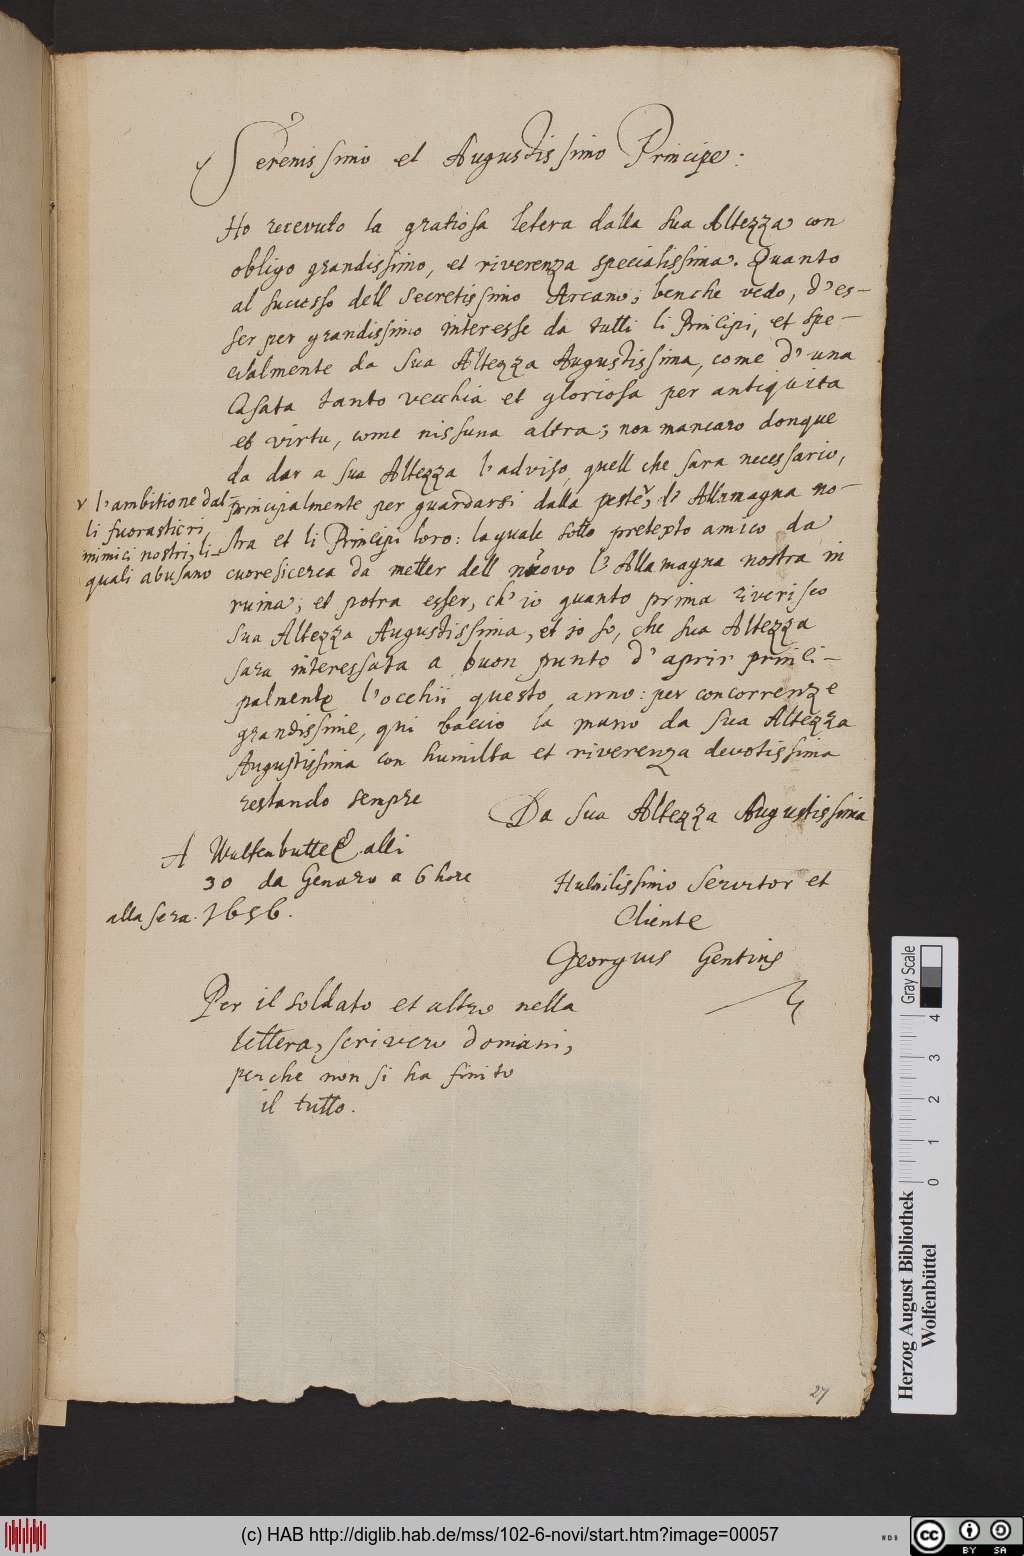 Serenissimo et Augustissimo Principe:
Ho recevuto la gratiosa letera dalla sua Altezza con
obligo grandissimo, et riverenza specialissima. Quanto
al sucesso dell Secretissimo Arcano; benche vedo, d'es-
ser per grandissimo interesse da tutti li Principi, et spe-
cialmente da Sua Altezza Augustissima, come d'una
Casata tanto vecchia et gloriosa per antiquita
et virtu, come nissuna altra; non mancaro donque
da dar a sua Altezza l'adviso, quell che sara necessario,
principalmente per guardarsi dalla peste, l'Allamagna no-
stra et li Principi loro: la quale sotto pretexto amico da
cuore si cerca da metter dell nuovo l'Allamagna nostra in
ruina; et potra esser, ch'io quanto prima riverisco
Sua Altezza Augustissima, et io so, che sua Altezza
sara interessata a buon punto d'aprir princi-
palmente l'occhii questo anno: per concorrenze
grandissime, qui baccio la mano da sua Altezza
Augustissima con humilta et riverenza devotissima
restando sempre
Da Sua Altezza Augustissima
v l'ambitione dal-
li fuorastieri,
nimici nostri, li-
quali abusano
A Wulfenbuttel alli
30 da Genaro a 6 hore
alla sera. 1656.
Humilissimo Servitor et
Cliente
Georgius Gentius
Per il soldato et altro nella
lettera, scrivero domani,
perche non si ha finito
il tutto.
27
Gray Scale
0 1 2 3 4
Herzog August Bibliothek
Wolfenbüttel
(c) HAB http://diglib.hab.de/mss/102-6-novi/start.htm?image=00057
WDB
cc BY SA